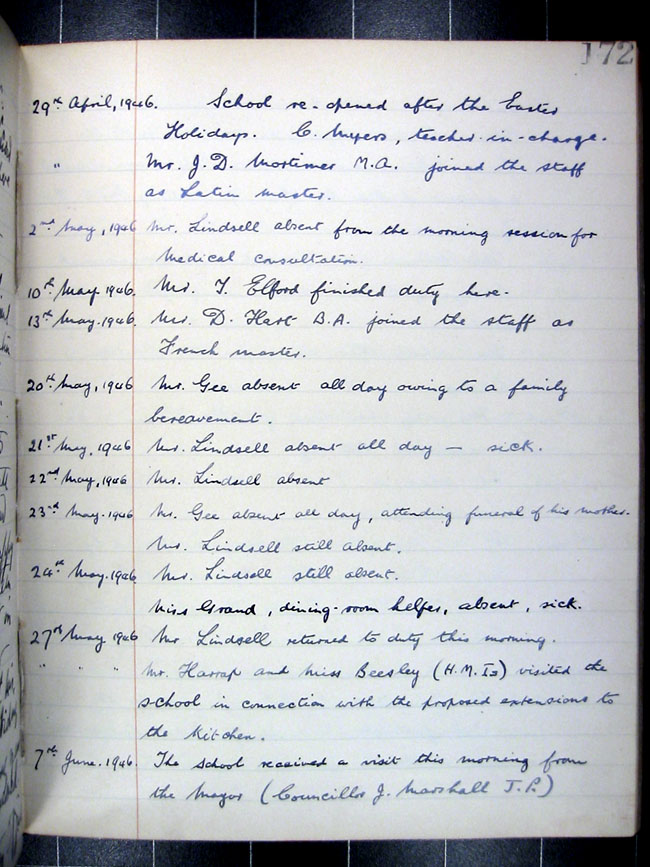 172
29th April, 1946. School re-opened after the Easter
Holidays. C. Meyers, teacher-in-charge.
" Mr. J. D. Mortimer M.A. joined the staff
as Latin master.
2nd May, 1946 Mr. Lindsell absent from the morning session for
medical consultation.
10th May 1946. Mr. T. Elford finished duty here.
13th May. 1946. Mr. D. Hart B.A. joined the staff as
French master.
20th May, 1946 Mr. Gee absent all day owing to a family
bereavement.
21st May, 1946 Mr. Lindsell absent all day — sick.
22nd May, 1946 Mr. Lindsell absent
23rd May. 1946 Mr. Gee absent all day, attending funeral of his mother.
Mr. Lindsell still absent.
24th May. 1946 Mr. Lindsell still absent.
Miss Grand, dining-room helper, absent, sick.
27th May 1946 Mr Lindsell returned to duty this morning.
" " " Mr. Harrap and Miss Beesley (H.M.Is) visited the
school in connection with the proposed extensions to
the kitchen.
7th June. 1946. The school received a visit this morning from
the Mayor (Councillor J. Marshall J.P.)